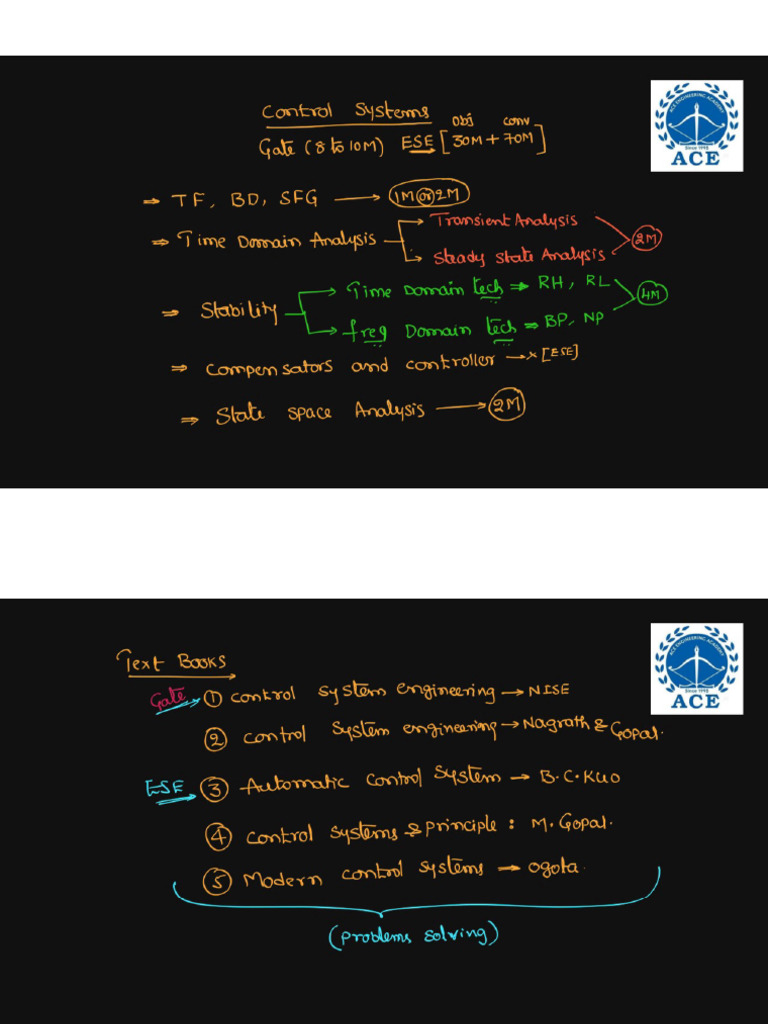 Control Systems
Gate (8 to 10M) ESE [30M + 70M]
Obj Conv
ACE ENGINEERING ACADEMY
Since 1995
ACE
⇒ TF, BD, SFG → 1M or 2M
⇒ Time Domain Analysis → Transient Analysis
→ Steady State Analysis 2M
⇒ Stability → Time Domain tech ⇒ RH, RL
→ freq Domain tech ⇒ BP, NP 4M
⇒ Compensators and controller → x [ESE]
⇒ State space Analysis → 2M
ACE ENGINEERING ACADEMY
Since 1995
ACE
Text Books
Gate → ① Control system engineering → NISE
② Control System engineering → Nagrath & Gopal.
ESE → ③ Automatic Control System → B.C.Kuo
④ Control Systems & principle : M. Gopal.
⑤ Modern control systems → ogota.
(problems solving)